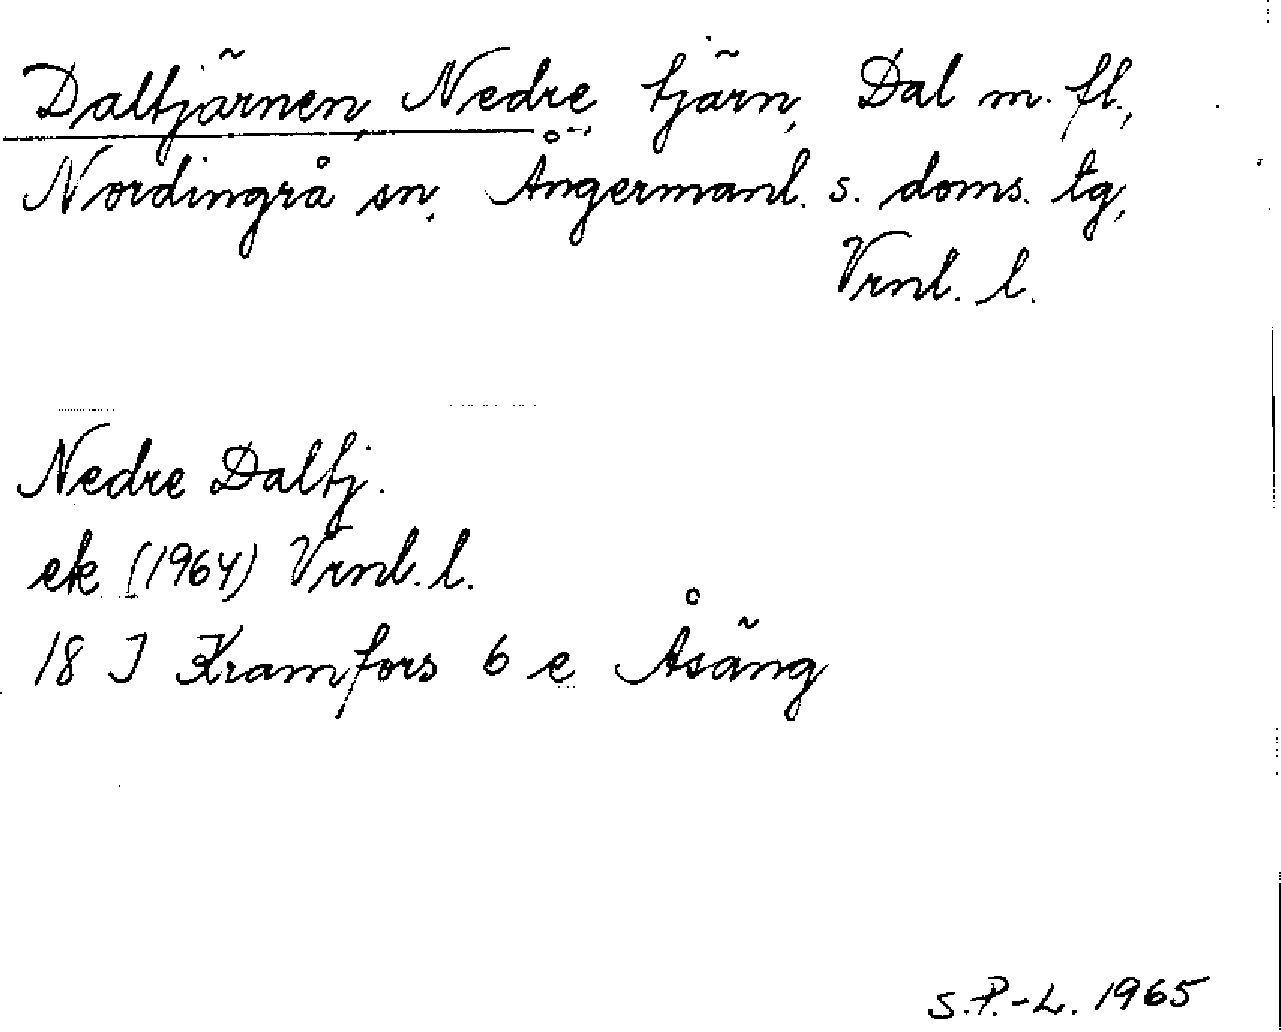 Daltjärnen, Nedre, tjärn, Dal m. fl.,
Nordingrå sn, Ångermanl. s. doms. tg,
Vrnl. l.
Nedre Daltj.
ek (1964) Vrnl. l.
18 J Kramfors 6 e Åsäng
S.P.-L. 1965